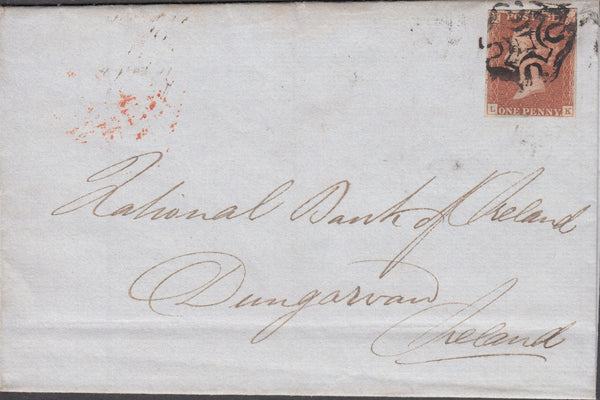 POSTAGE
ONE PENNY
L K
National Bank of Ireland
Dungarvan
Ireland